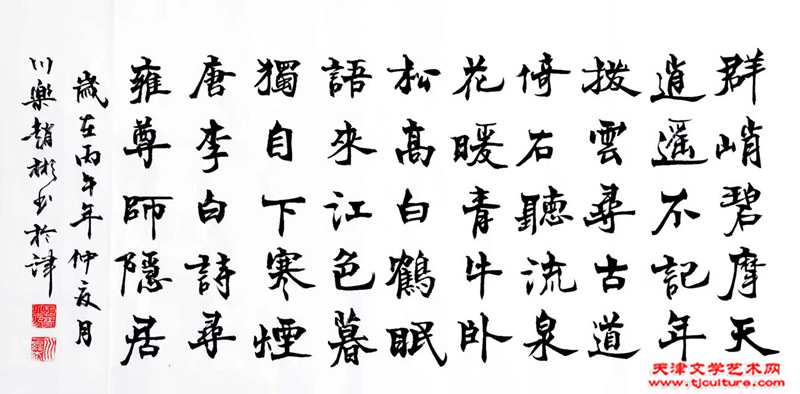 群峭碧摩天
逍遥不記年
撥雲尋古道
倚石聽流泉
花暖青牛卧
松高白鶴眠
語來江色暮
獨自下寒煙
唐李白詩尋
雍尊師隱居
歲在丙午年仲夏月
川樂趙彬书於津
天津文学艺术网
www.tjculture.com